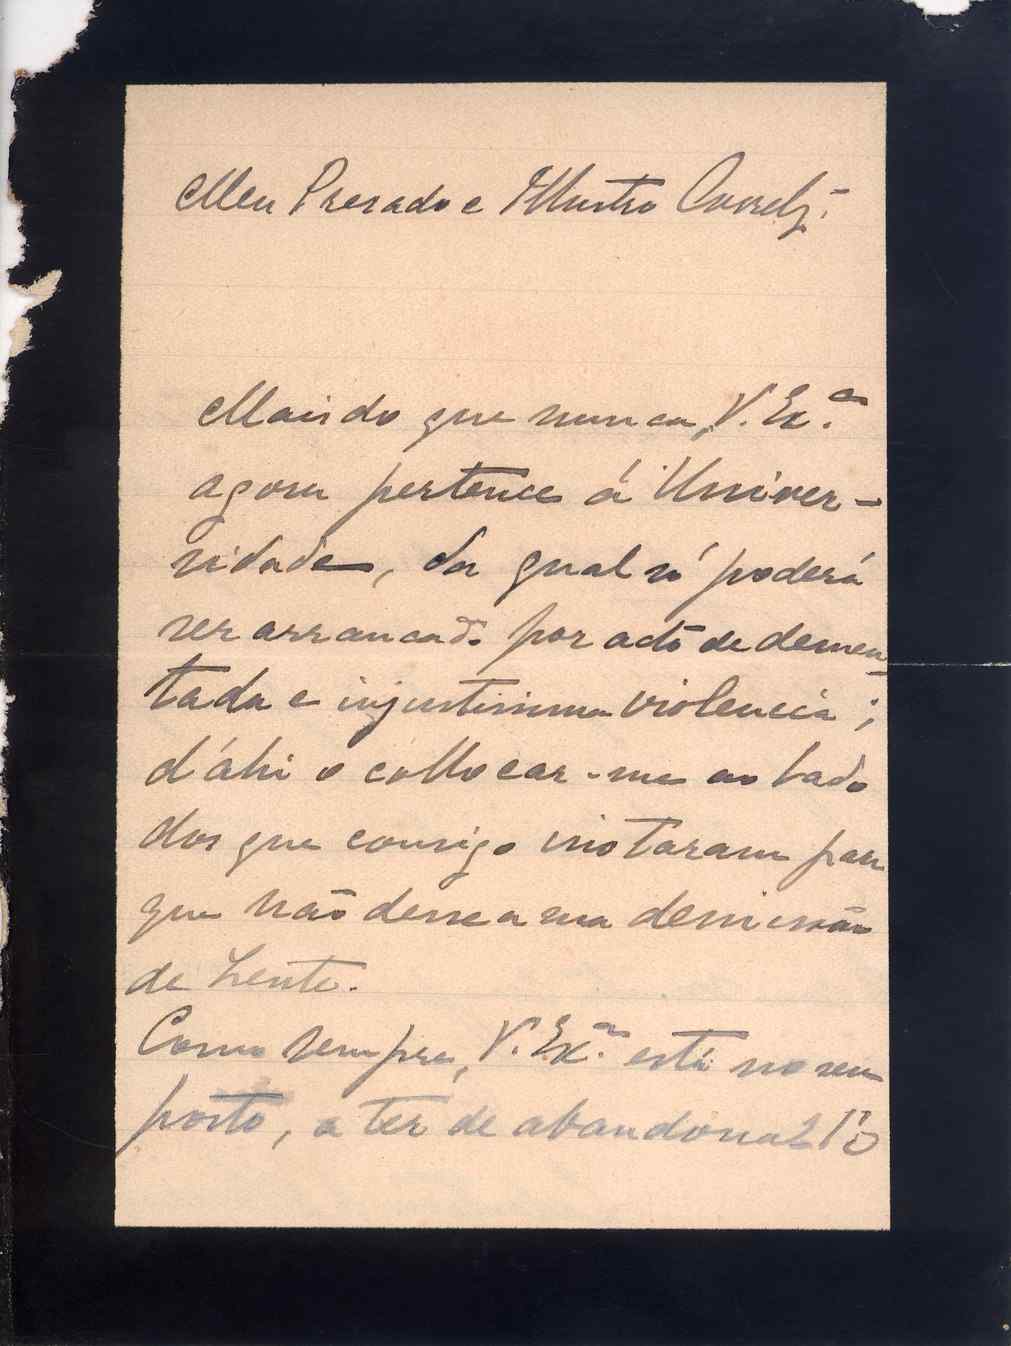 Meu Presado e Illustre Consel.º
Mais do que nunca, V. Ex.ª
agora pertence á Univer-
sidade, da qual só poderá
ser arrancado por acto de demen-
tada e injustissima violencia;
d'áhi o collocar-me ao lado
dos que consigo instaram para
que não desse a sua demissão
de Lente.
Como sempre, V. Ex.ª está no seu
posto, a ter de abandonal'o